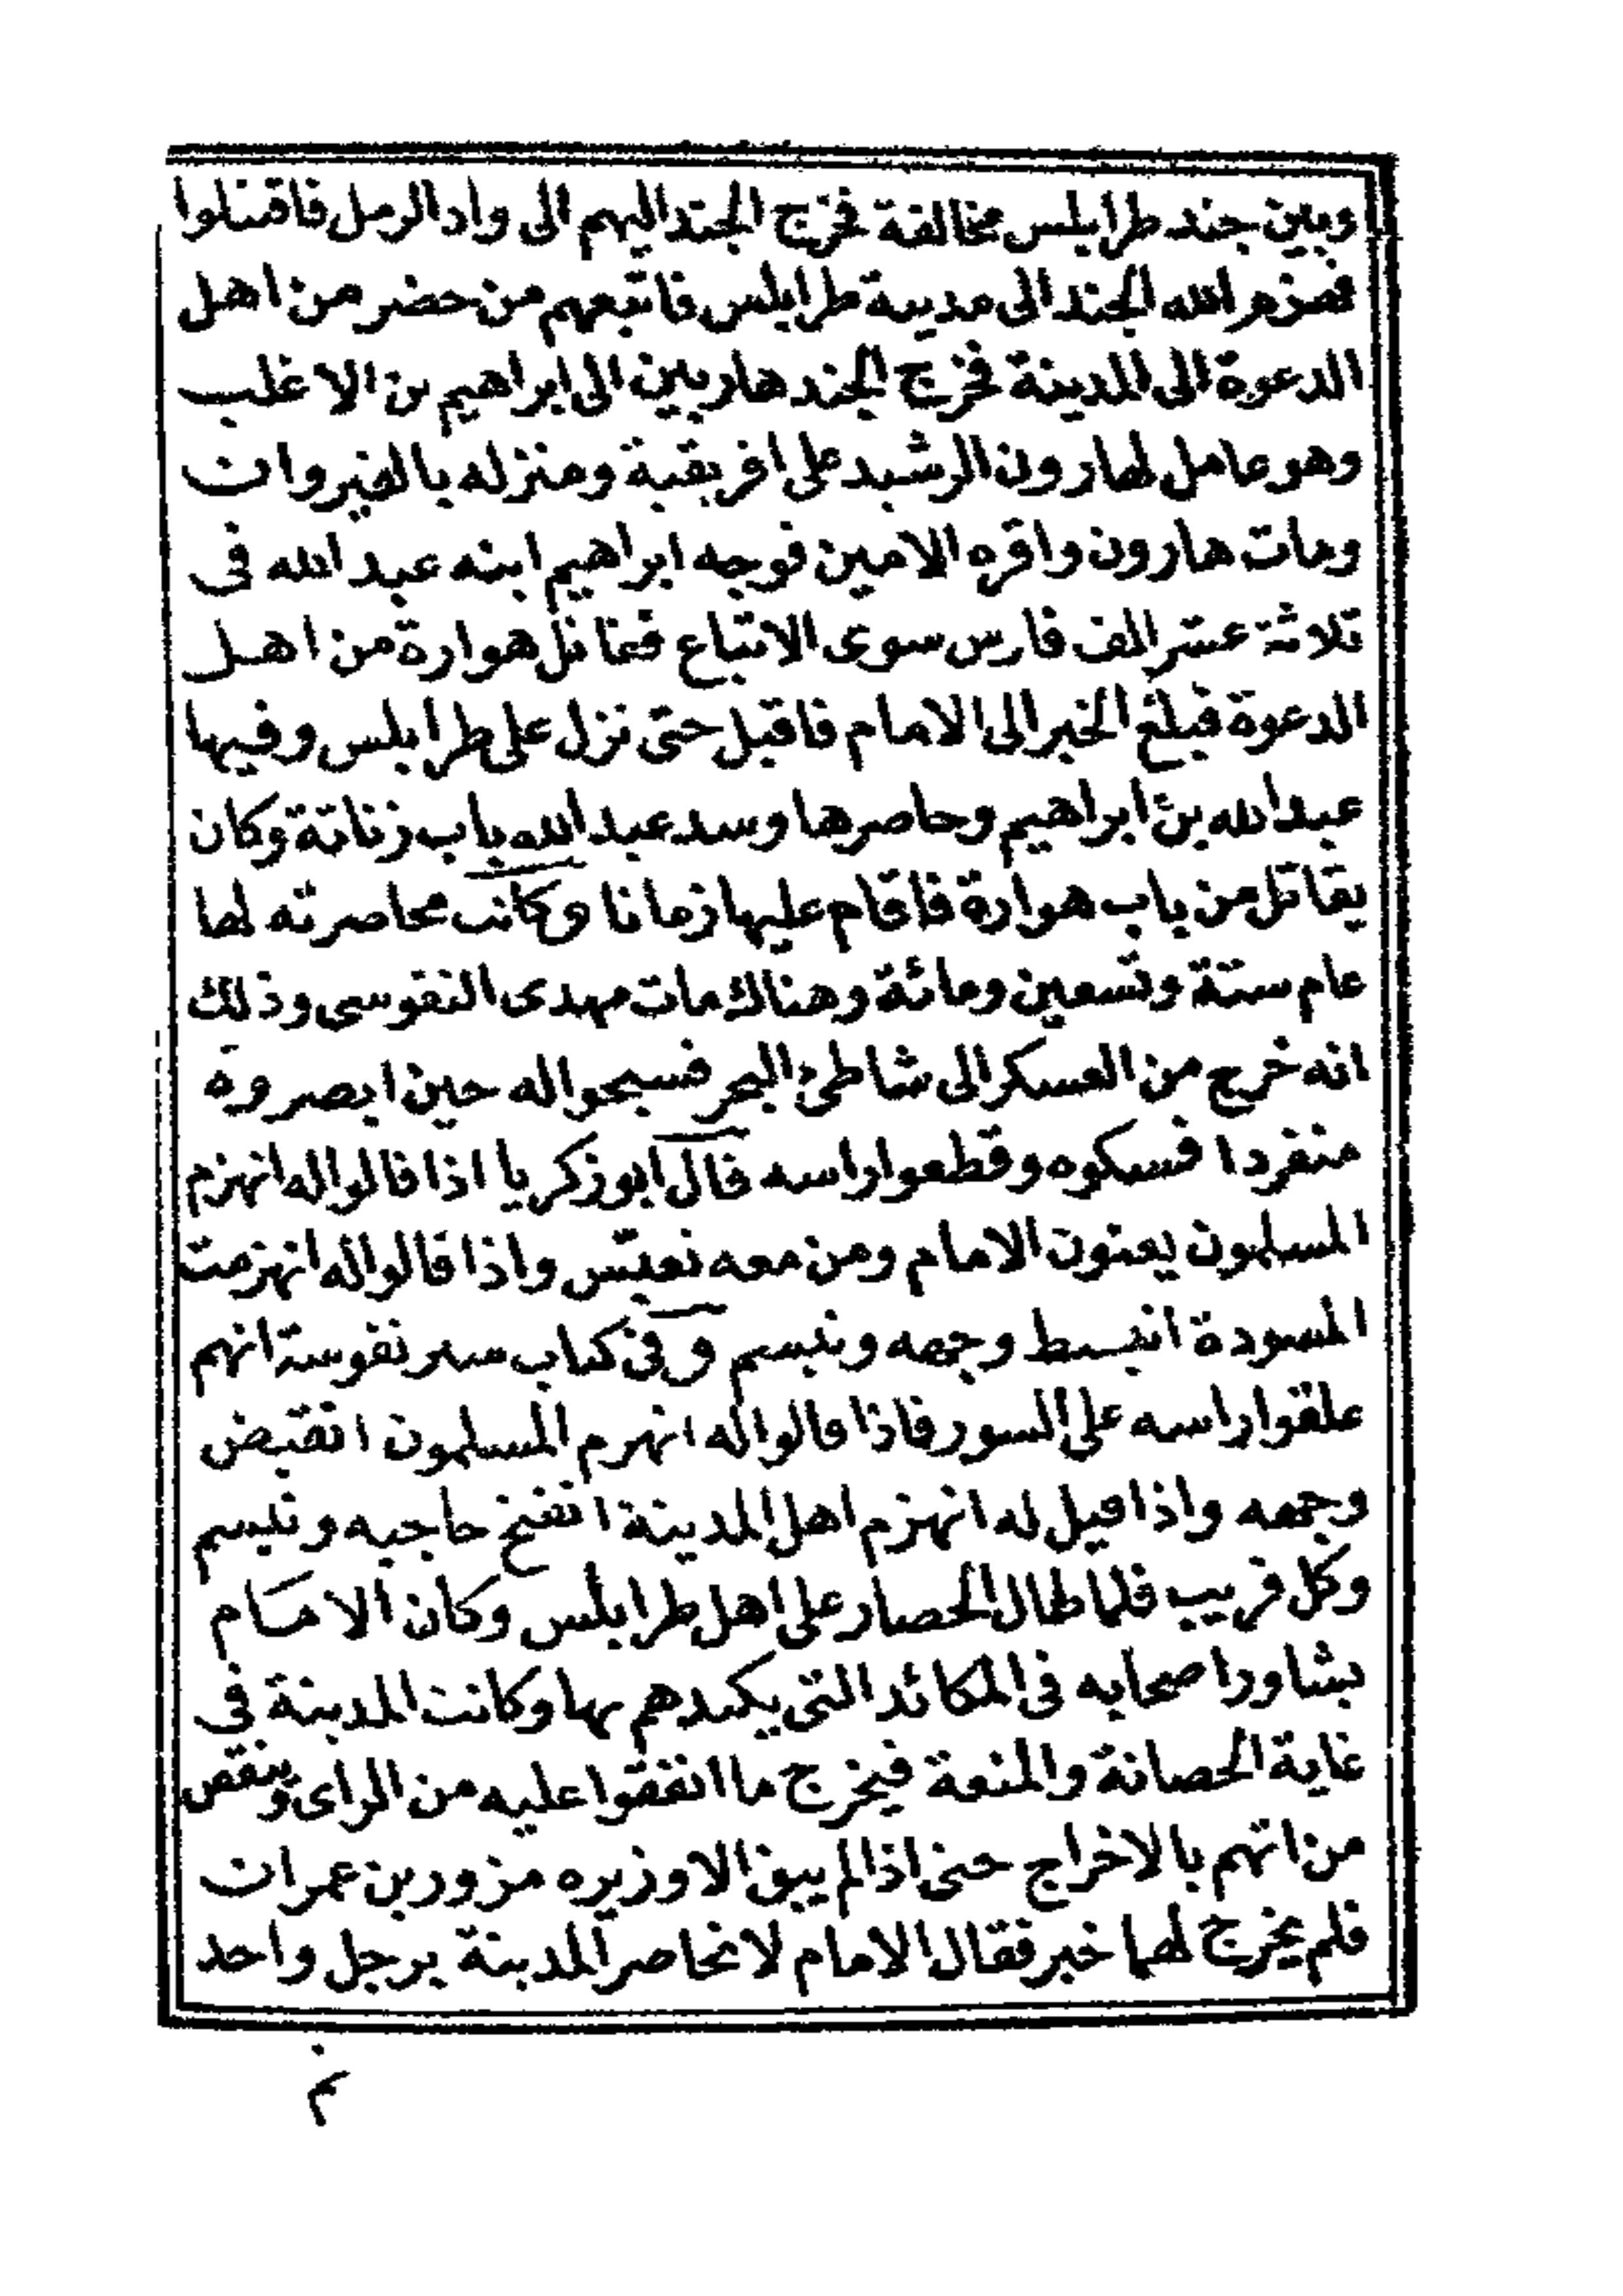 وبين جند طرابلس مخالفة فخرج الجند اليهم الى واد الرمل فاقتتلوا
فهزم الله الجند الى مدينة طرابلس فاتبعهم من حضر من اهل
الدعوة الى المدينة فخرج الجند هاربين الى ابراهيم بن الاغلب
وهو عامل لهارون الرشيد على افريقية ومنزله بالقيروان
ومات هارون واقره الامين فوجه ابراهيم ابنه عبد الله فى
ثلاثة عشر الف فارس سوى الاتباع فقاتل هوارة من اهل
الدعوة فبلغ الخبر الى الامام فاقبل حتى نزل على طرابلس وفيها
عبد الله بن ابراهيم وحاصرها وسد عبد الله باب زناتة وكان
يقاتل من باب هوارة فاقام عليها زمانا وكانت محاصرته لها
عام ستة وتسعين ومائة وهناك مات مهدى النفوسى وذلك
انه خرج من العسكر الى شاطئ البحر فسبحوا له حين ابصروه
منفردا فمسكوه وقطعوا راسه قال ابو زكريا اذا قالوا له انهزم
المسلمون يعنون الامام ومن معه تعبّس واذا قالوا له انهزمت
المسودة انبسط وجهه وتبسم وفى كتاب سير نفوسة انهم
علقوا راسه على السور فاذا قالوا له انهزم المسلمون انقبض
وجهه واذا قيل له انهزم اهل المدينة انفتح حاجبه وتبسم
وكل قريب فلما طال الحصار على اهل طرابلس وكان الامام
يشاور اصحابه فى المكائد التى يكيدهم بها وكانت المدينة فى
غاية الحصانة والمنعة فيخرج ما اتفقوا عليه من الراى وينقص
من اتهم بالاخراج حتى اذا لم يبق الا وزيره مزور بن عمران
فلم يخرج لهما خبر فقال الامام لا نحاصر المدينة برجل واحد